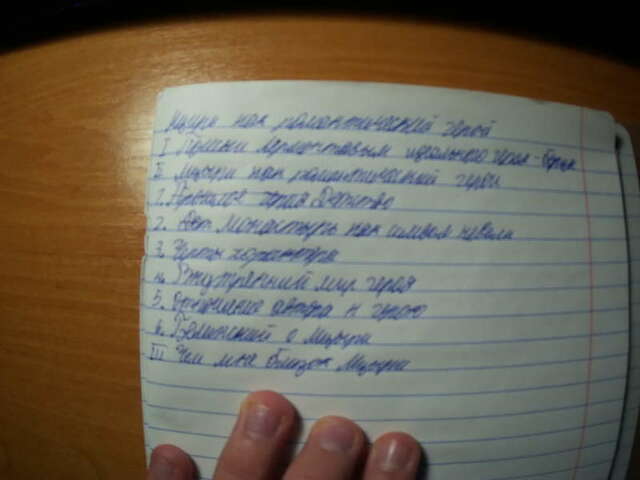 Мцыри как романтический герой
I Поиски Лермонтовым идеального героя-борца
II Мцыри как романтический герой
1. Прошлое героя Детство
2. Монастырь как символ неволи
3. Черты характера
4. Внутренний мир героя
5. Отношение автора к герою
6. Белинский о Мцыри
III Чем мне близок Мцыри